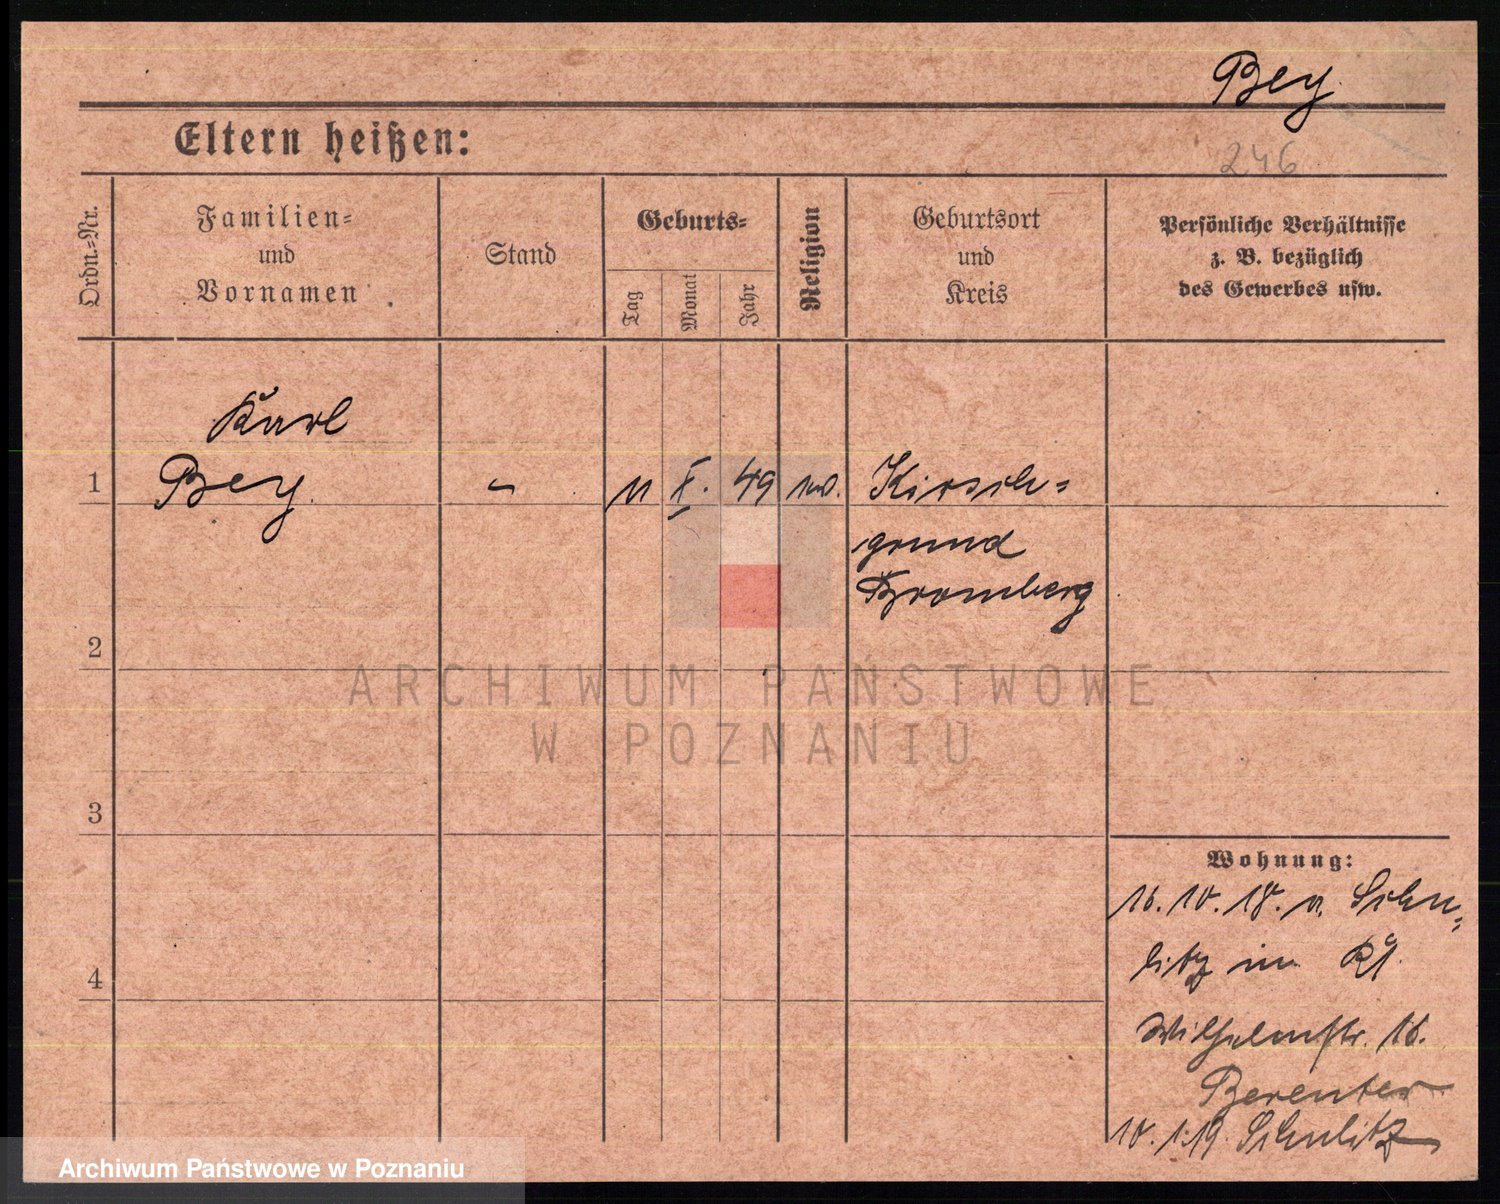 Bey
246
Eltern heißen:
Ordn.=Nr.
Familien=
und
Vornamen
Stand
Geburts=
Tag
Monat
Jahr
Religion
Geburtsort
und
Kreis
Persönliche Verhältnisse
z. B. bezüglich
des Gewerbes usw.
Karl
1 Bey. - 11 X. 49 ev. Kirsch=
grund
Bromberg
2
3
4
Wohnung:
16.10.18. n. Schu=
litz in
Wilhelmstr. 16.
Berenter
10.1.19. Schulitz
ARCHIWUM PAŃSTWOWE
W POZNANIU
Archiwum Państwowe w Poznaniu